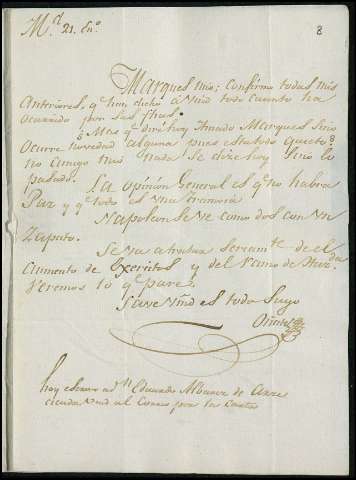 M.d 21. En.o
8
Marques mio; Confirmo todas mis
Anteriores, q.e han dicho a Vmd todo cuanto ha
ocurrido por
¿Mas q.e diré hoy Amado Marques Sino
Ocurre novedad alguna pues está todo quieto?
no Amigo mio nada se dize hoy Sino lo
pasado. La opinión General es q.e no habra
Paz y q.e todo es una tramoia
Napoleon se ve como dos con un
Zapato.
Se va a tratar seriam.te de el
aumento de Exercitos y del Ramo de Haz.da
Veremos lo q.e pare.
Save Vmd es todo Suyo
hoy escrivo a d.n Eduardo Albarez de
Vmd al Correo por la Carta